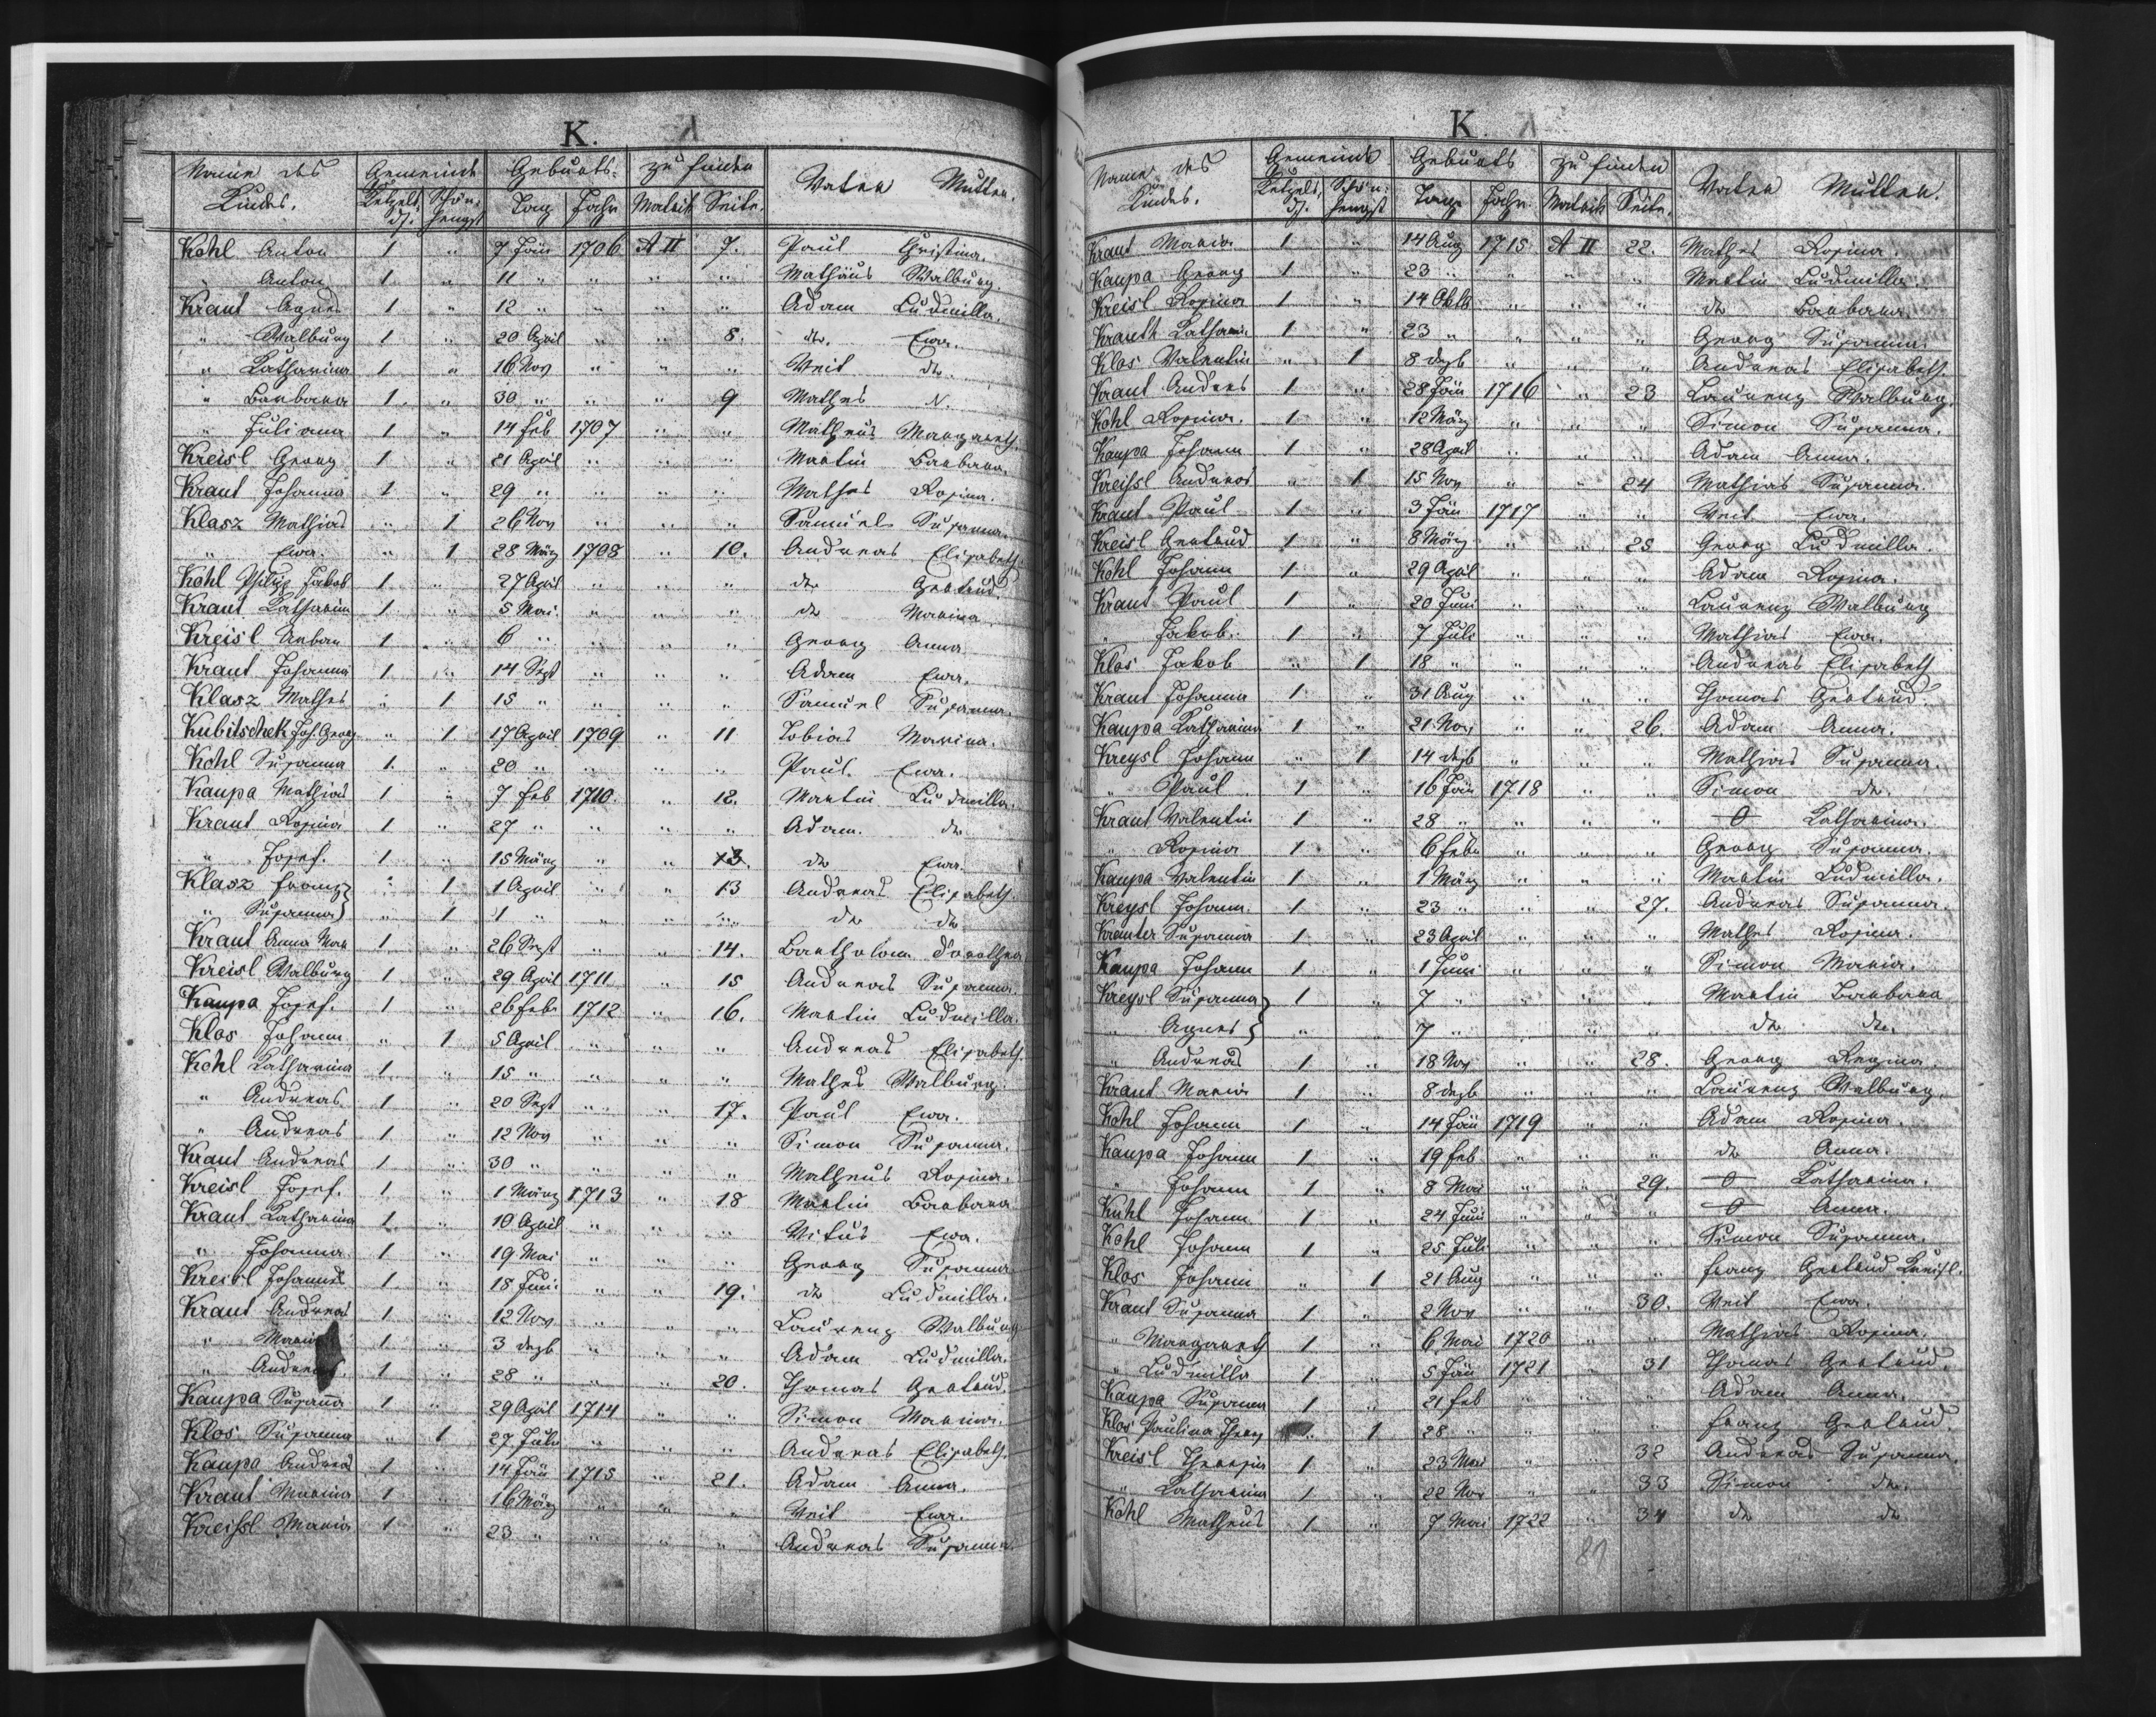 K.
Name des Kindes. Gemeinde Geburts- zu finden Vater Mutter.
Ketzelsdf. Schönhengst Tag Jahr Matrik Seite.
Kohl Anton 1 " 7 Jän 1706 A II 7. Paul Christina.
" Anton 1 " 11 " " " " Mathäus Walburg.
Kraut Agnes 1 " 12 " " " " Adam Ludmilla.
" Walburg 1 " 20 April " " 8. dto. Ewa.
" Katharina 1 " 16 Nov " " " Veit dto
" Barbara 1. " 30 " " " 9 Mathes N.
" Juliana 1 " 14 Feb 1707 " " Matheus Margareth.
Kreisl Georg 1 " 21 April " " " Martin Barbara.
Kraut Johanna 1 " 29 " " " " Mathes Rosina.
Klasz Mathias " 1 26 Nov " " " Samuel Susanna.
" Ewa. " 1 28 März 1708 " 10. Andreas Elisabeth.
Kohl Philipp Jakob 1 " 27 April " " " dto Gertrud.
Kraut Katharina 1 " 5 Mai " " " dto Marina.
Kreisl Urban 1 " 6 " " " " Georg Anna
Kraut Johanna 1 " 14 Sept " " " Adam Ewa.
Klasz Mathes " 1 15 " " " " Samuel Susanna.
Kubitschek Joh. Georg " 1 17 April 1709 " 11 Tobias Marina.
Kohl Susanna 1. " 20 " " " " Paul. Ewa.
Kaupa Mathias 1 " 7 Feb 1710. " 12. Martin Ludmilla.
Kraut Rosina 1 " 27 " " " " Adam. dto
" Josef. 1 " 15 März " " 13. dto Ewa.
Klasz Franz } " 1 1 April " " 13 Andreas Elisabeth.
" Susanna } " 1 1 " " " " dto dto
Kraut Anna Mar 1 " 26 Sept " " 14. Bartholom. Dorothea
Kreisl Walburg 1 " 29 April 1711 " 15 Andreas Susanna.
Kaupa Josef. 1 " 26 Febr 1712 " 16. Martin Ludmilla.
Klos Johann " 1 5 April " " " Andreas Elisabeth.
Kohl Katharina 1 " 15 " " " " Mathes Walburg.
" Andreas. 1 " 20 Sept " " 17. Paul Ewa.
" Andreas 1 " 12 Nov " " " Simon Susanna.
Kraut Andreas 1 " 30 " " " " Matheus Rosina.
Kreisl Josef. 1 " 1 März 1713 " 18 Martin Barbara
Kraut Katharina 1 " 10 April " " " Vitus Ewa.
" Johanna 1 " 19 Mai " " " Georg Susanna
Kreisl Johannes 1 " 18 Juni " " 19. dto Ludmilla.
Kraut Andreas 1 " 12 Nov " " " Laurenz Walburg
" 1 " 3 Dezb " " " Adam Ludmilla.
" Andreas. 1 " 28 " " " 20. Thomas Gertrud.
Kaupa Susanna 1 " 29 April 1714 " " Simon Marina.
Klos Susanna " 1 27 Juli " " " Andreas Elisabeth.
Kaupa Andreas 1 " 14 Jän 1715 " 21. Adam Anna.
Kraut Marina 1 " 16 März " " " Veit Ewa.
Kreissl Maria 1 " 23 " " " " Andreas Susanna.
K.
Name des Kindes. Gemeinde Geburts zu finden Vater Mutter.
Ketzelsdf. Schönhengst Tag Jahr Matrik Seite.
Kraut Maria 1 " 14 Aug 1715 A II 22. Mathes Rosina.
Kaupa Georg 1 " 23 " " " " Martin Ludmilla.
Kreisl Rosina 1 " 14 Oktb " " " dto Barbara.
Krauth Katharin 1 " 23 " " " " Georg Susanna.
Klos Valentin " 1 8 dezb " " " Andreas Elisabeth
Kraut Andres 1 " 28 Jän 1716 " 23 Laurenz Walburg.
Kohl Rosina. 1 " 12 März " " " Simon Susanna.
Kaupa Johann 1 " 28 April " " " Adam Anna.
Kreissl Andreas " 1 15 Nov " " 24 Mathias Susanna.
Kraut Paul 1 " 3 Jän 1717 " " Veit Ewa.
Kreisl Gertrud 1 " 8 März " " 25 Georg Ludmilla.
Kohl Johann 1 " 29 April " " " Adam Rosina.
Kraut Paul 1 " 20 Juni " " " Laurenz Walburg
" Jakob. 1 " 7 Juli " " " Mathias Ewa.
Klos Jakob " 1 18 " " " " Andreas Elisabeth
Kraut Johanna 1 " 31 Aug " " " Thomas Gertrud.
Kaupa Katharina 1 " 21 Nov " " 26. Adam Anna.
Kreysl Johann " 1 14 dezb " " " Mathias Susanna.
" Paul 1 " 16 Jän 1718 " " Simon dto.
Kraut Valentin 1 " 28 " " " " 0 Katharina.
" Rosina 1 " 6 Febr " " " Georg Susanna.
Kaupa Valentin 1 " 1 März " " " Martin Ludmilla.
Kreysl Johann. 1 " 23 " " " 27. Andreas Susanna.
Krauter Susanna 1 " 23 April " " " Mathes Rosina.
Kaupa Johann 1 " 1 Juni " " " Simon Maria.
Kreysl Susanna } 1 " 7 " " " " Martin Barbara
" Agnes } " " 7 " " " " dto dto.
" Andreas 1 " 18 Nov " " 28. Georg Regina.
Kraut Maria 1 " 8 dezb " " " Laurenz Walburg.
Kohl Johann 1 " 14 Jän 1719 " " Adam Rosina.
Kaupa Johann 1 " 19 Feb " " " dto Anna.
" Johann 1 " 8 Mai " " 29. 0 Katharina.
Kuhl Johann 1 " 24 Juni " " " 0 Anna.
Kohl Johann 1 " 25 Juli " " " Simon Susanna.
Klos Johann " 1 21 Aug " " " Franz Gertrud Kreisl.
Kraut Susanna 1 " 2 Nov " " 30. Veit Ewa.
" Margareth 1 " 6 Mai 1720 " " Mathias Rosina.
" Ludmilla 1 " 5 Jän 1721 " 31 Thomas Gertrud.
Kaupa Susanna 1 " 21 Feb " " " Adam Anna.
Klos Paulina 1 28 " " " " Franz Gertrud.
Kreisl Theresia 1 " 23 Mai " " 32 Andreas Susanna.
" Katharina 1 " 22 Nov " " 33 Simon dto.
Kohl Matheus 1 " 7 Mai 1722 " 34 dto dto